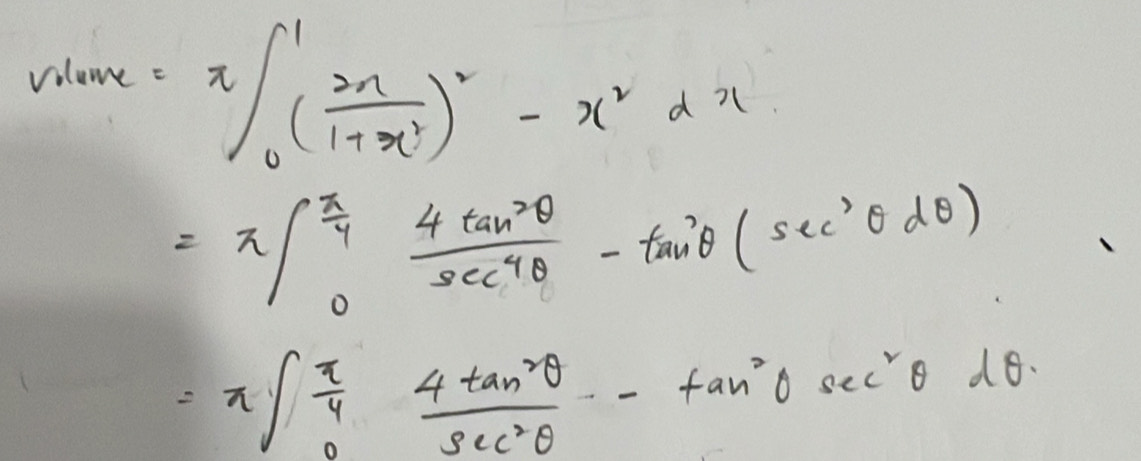 volume = π ∫₀¹ (2x / 1+x²)² - x² dx.
= π ∫₀^(π/4) 4 tan²θ / sec⁴θ - tan²θ (sec²θ dθ)
= π ∫₀^(π/4) 4 tan²θ / sec²θ - tan²θ sec²θ dθ.